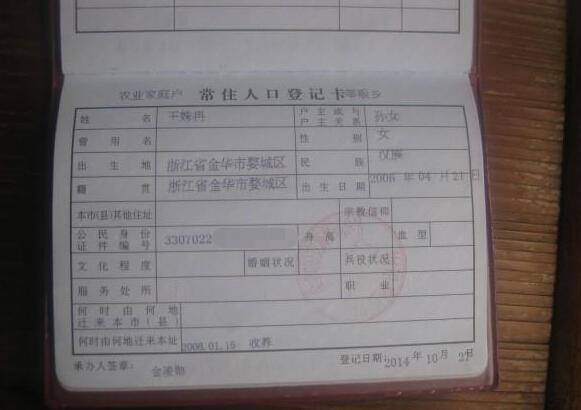 农业家庭户 常住人口登记卡
姓名 王姝冉 户主或与户主关系 孙女
曾用名 性别 女
出生地 浙江省金华市婺城区 民族 汉族
籍贯 浙江省金华市婺城区 出生日期 2006年04月21日
本市(县)其他住址 宗教信仰
公民身份证件编号 3307022 身高 血型
文化程度 婚姻状况 兵役状况
服务处所 职业
何时由何地迁来本市(县)
何时由何地迁来本址 2008.01.15 收养
承办人签章: 登记日期:2014年10月27日